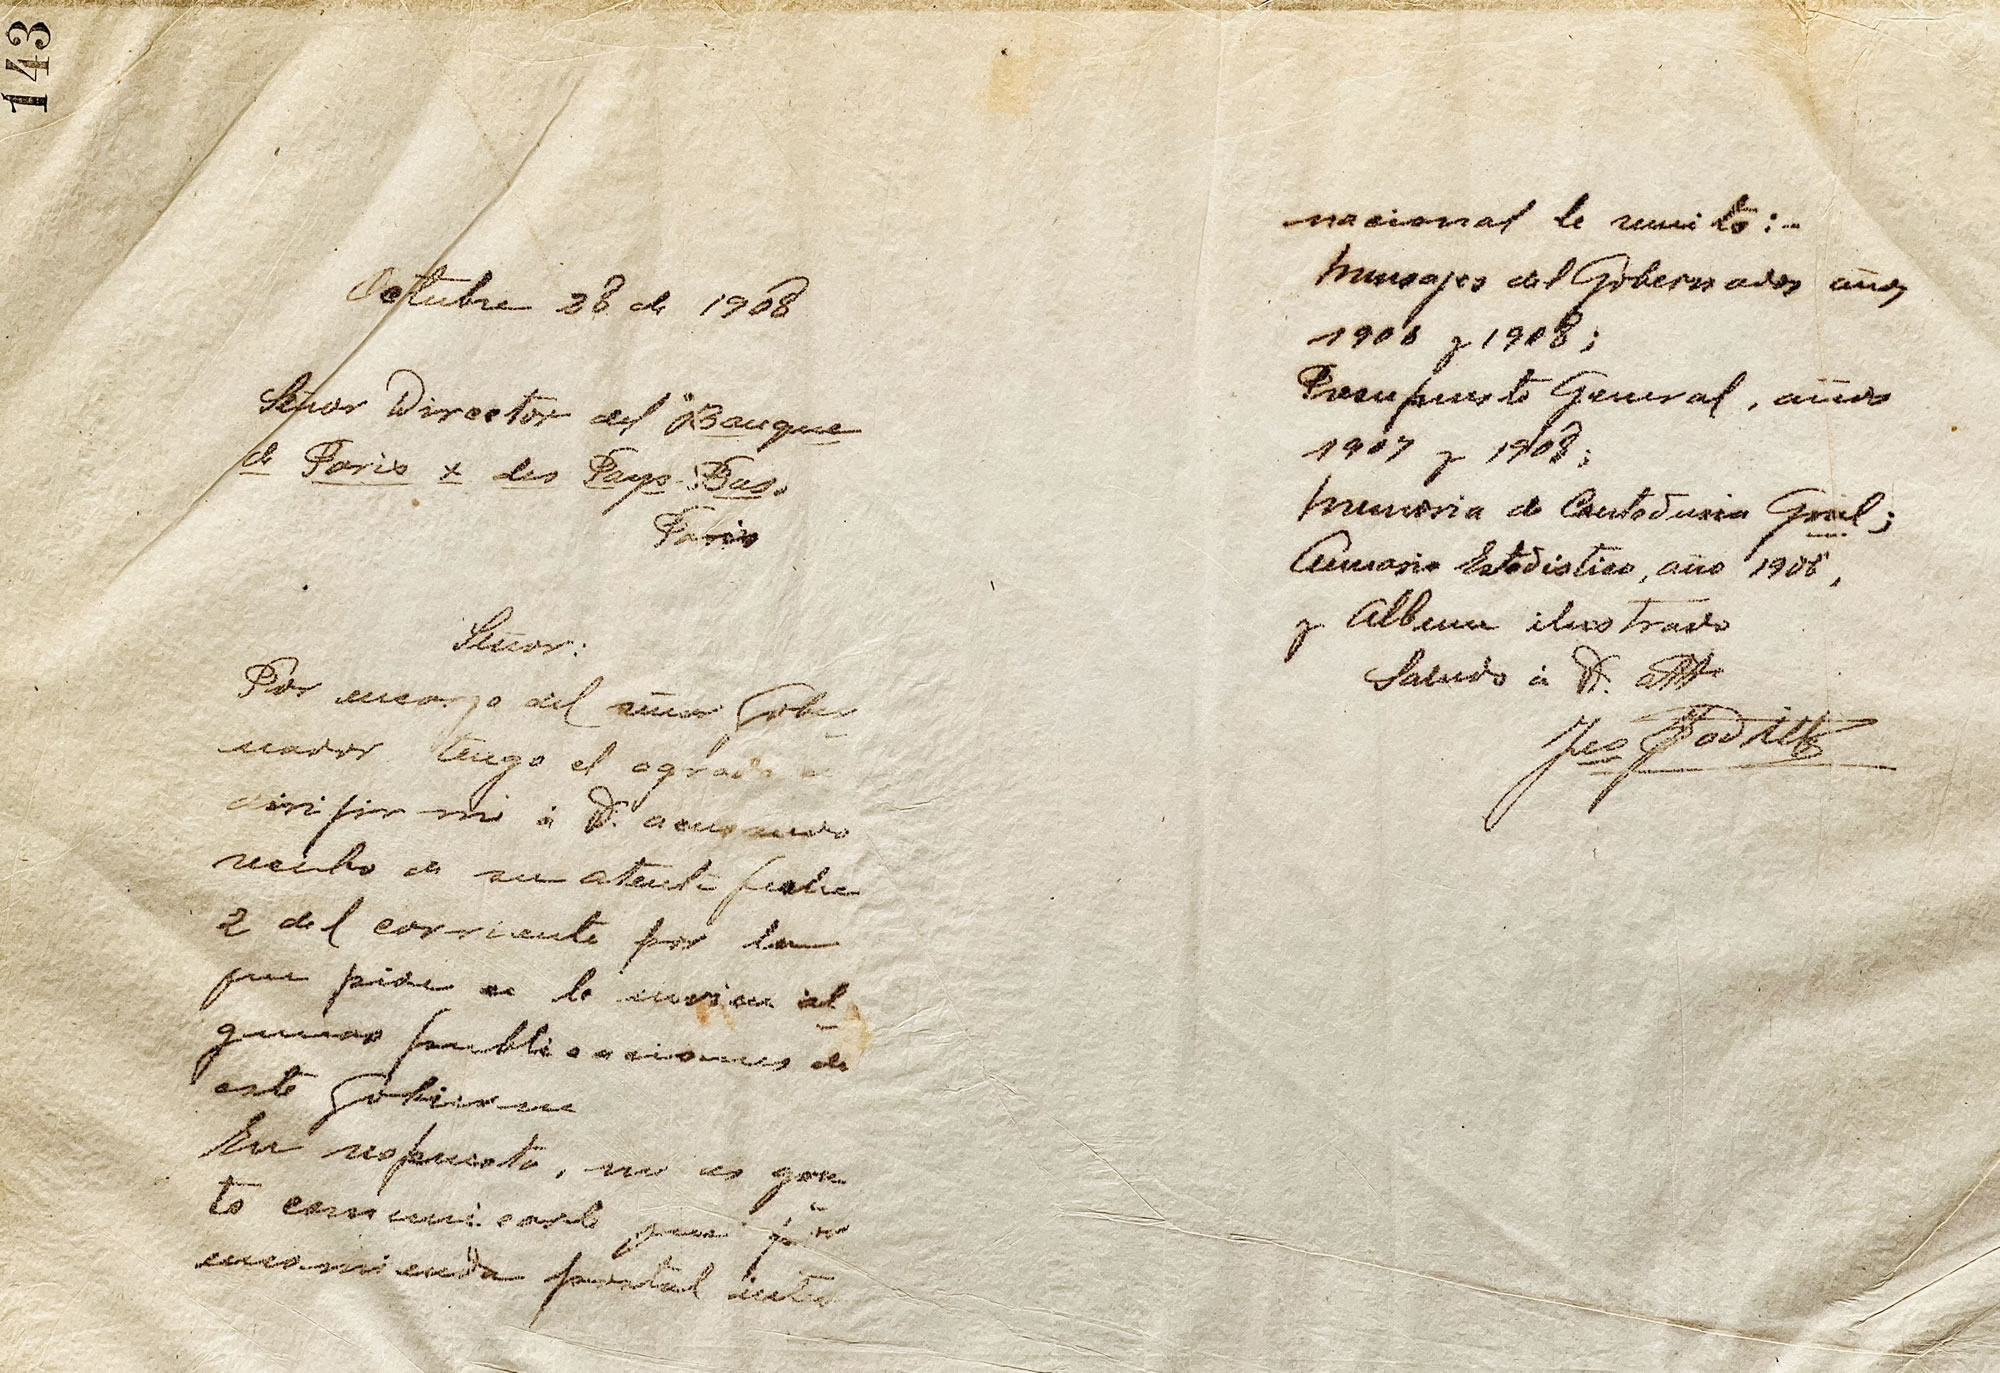 143
Octubre 28 de 1908
Señor Director del "Banque
de Paris & des Pays-Bas.
Paris
Señor:
Por encargo del señor Gober
nador tengo el agrado de
dirijirme á V. acusando
recibo de su atenta fecha
2 del corriente por la
que pide se le envien al
gunas publicaciones de
este Gobierno
En respuesta, me es gra
to comunicarle que por
encomienda postal inter
nacional le remito:-
Mensajes del Gobernador años
1906 y 1908;
Presupuesto General, años
1907 y 1908;
Memoria de Contaduria Gral;
Anuario Estadistico, año 1906,
y Album ilustrado
Saludo á V. atte